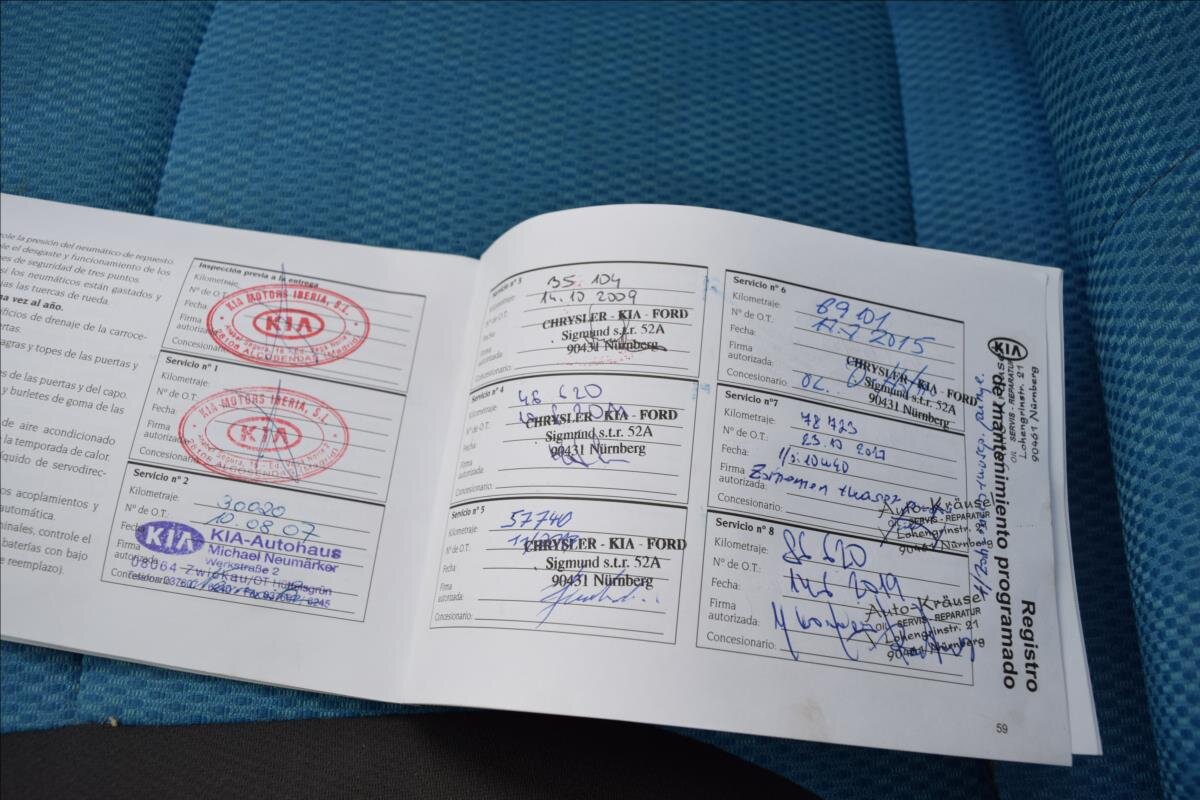 ole la presión del neumático de repuesto.
le el desgaste y funcionamiento de los
es de seguridad de tres puntos.
si los neumáticos están gastados y
ias las tuercas de rueda.
na vez al año.
ificios de drenaje de la carroce-
ertas.
agras y topes de las puertas y
es de las puertas y del capo.
y burletes de goma de las
de aire acondicionado
la temporada de calor.
íquido de servodirec-
os acoplamientos y
automática.
minales, controle el
baterías con bajo
reemplazo).
Inspección previa a la entrega
Kilometraje:
Nº de O.T.:
Fecha:
Firma
autorizada:
Concesionario:
KIA MOTORS IBERIA, S.L.
KIA
28108 ALCOBENDAS (Madrid)
Servicio nº 1
Kilometraje:
Nº de O.T.:
Fecha:
Firma
autorizada:
Concesionario:
KIA MOTORS IBERIA, S.L.
KIA
28108 ALCOBENDAS (Madrid)
Servicio nº 2
Kilometraje: 30020
Nº de O.T.: 10.08.07
Fecha:
Firma
KIA KIA-Autohaus
Michael Neumärker
Werkstraße 2
08064 Zwickau/OT
Concesionario:
Servicio nº 3
35.104
14.10 2009
Nº de O.T.:
Fecha:
Firma
autorizada:
Concesionario:
CHRYSLER - KIA - FORD
Sigmund s.t.r. 52A
90431 Nürnberg
Servicio nº 4
Kilometraje: 46 620
Nº de O.T.:
Fecha:
Firma
autorizada:
Concesionario:
CHRYSLER - KIA - FORD
Sigmund s.t.r. 52A
90431 Nürnberg
Servicio nº 5
Kilometraje: 57740
Nº de O.T.:
Fecha:
Firma
autorizada:
Concesionario:
CHRYSLER - KIA - FORD
Sigmund s.t.r. 52A
90431 Nürnberg
Servicio nº 6
Kilometraje: 69101
Nº de O.T.:
Fecha:
Firma
autorizada:
Concesionario:
CHRYSLER - KIA - FORD
Sigmund s.t.r. 52A
90431 Nürnberg
Servicio nº7
Kilometraje: 78 723
Nº de O.T.: 23.10 2017
Fecha:
Firma
autorizada:
Concesionario:
Auto-Kräusel
ÖL SERVIS - REPARATUR
Lohengrinstr. 21
90461 Nürnberg
Servicio nº 8
Kilometraje: 86 620
Nº de O.T.:
Fecha: 14.6 2019
Firma
autorizada:
Concesionario:
Auto-Kräusel
ÖL SERVIS - REPARATUR
Lohengrinstr. 21
90461 Nürnberg
KIA
Registro
de mantenimiento programado
ÖL SERVIS - REPARATUR
Lohengrinstr. 21
90461 Nürnberg
59